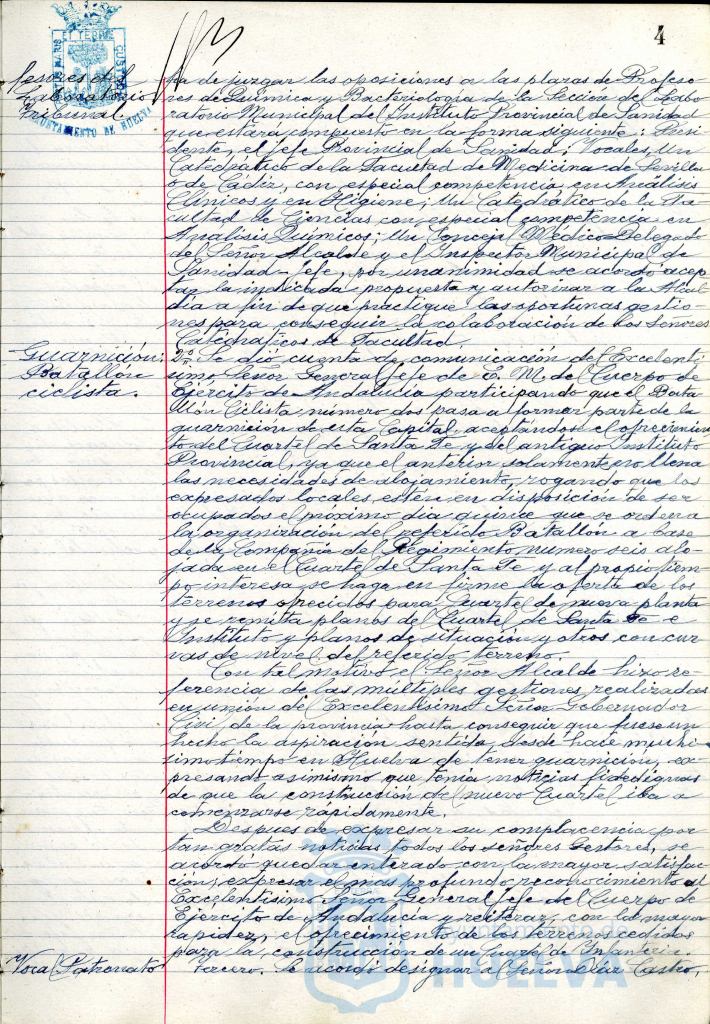 4
fesores del
Laboratorio
Tribunal
AYUNTAMIENTO DE HUELVA
ha de juzgar las oposiciones a las plazas de Profeso-
res de Química y Bacteriología de la Sección de Labo-
ratorio Municipal del Instituto Provincial de Sanidad
que estará compuesto en la forma siguiente: Presi-
dente, el Jefe Provincial de Sanidad; Vocales, Un
Catedrático de la Facultad de Medicina de Sevilla
o de Cádiz, con especial competencia en Análisis
Clínicos y en Higiene; Un Catedrático de la Fa-
cultad de Ciencias con especial competencia en
Análisis Químicos; Un Concejal Médico Delegado
del Señor Alcalde y el Inspector Municipal de
Sanidad-Jefe, por unanimidad se acordó acep-
tar la indicada propuesta y autorizar a la Alcal-
día a fin de que practique las oportunas gestio-
nes para conseguir la colaboración de los Señores
Catedráticos de Facultad.
Guarnición:
Batallón
ciclista.
2º Se dió cuenta de comunicación del Excelentí-
simo Señor General Jefe de E. M. del Cuerpo de
Ejército de Andalucía participando que el Bata-
llón Ciclista número dos pasa a formar parte de la
guarnición de esta Capital, aceptandose el ofrecimien-
to del Cuartel de Santa Fe y del antiguo Instituto
Provincial, ya que el anterior solamente no llena
las necesidades de alojamiento, rogando que los
expresados locales, estén en disposición de ser
ocupados el próximo dia quince que se ordena
la organización del referido Batallón a base
de la Compañía del Regimiento número seis alo-
jada en el Cuartel de Santa Fe y al propio tiem-
po interesa se haga en firme la oferta de los
terrenos ofrecidos para Cuartel de nueva planta
y se remita planos del Cuartel de Santa Fe e
Instituto y planos de situación y otros con cur-
vas de nivel del referido terreno.
Con tal motivo el Señor Alcalde hizo re-
ferencia de las múltiples gestiones realizadas
en unión del Excelentísimo Señor Gobernador
Civil de la provincia hasta conseguir que fuese un
hecho la aspiración sentida desde hace muchí-
simo tiempo en Huelva de tener guarnición, ex-
presando asimismo que tenía noticias fidedignas
de que la construcción del nuevo Cuartel iba a
comenzarse rápidamente.
Despues de expresar su complacencia por
tan gratas noticias todos los señores Gestores, se
acordó quedar enterado con la mayor satisfac-
ción, expresar el mas profundo reconocimiento al
Excelentísimo Señor General Jefe del Cuerpo de
Ejército de Andalucía y reiterar, con la mayor
rapidez, el ofrecimiento de los terrenos cedidos
para la construcción de un Cuartel de Infantería.
Vocal Patronato
Tercero. Se acordó designar al Señor Díaz Castro,
Ayuntamiento de
HUELVA